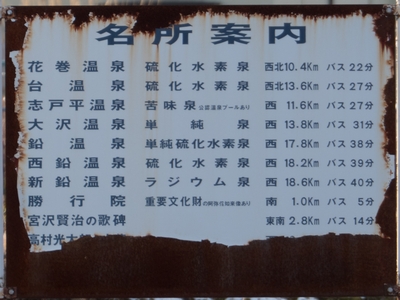 名所案内
花巻温泉 硫化水素泉 西北10.4Km バス22分
台温泉 硫化水素泉 西北13.6Km バス27分
志戸平温泉 苦味泉 公認温泉プールあり 西 11.6Km バス27分
大沢温泉 単純泉 西 13.8Km バス31分
鉛温泉 単純硫化水素泉 西 17.8Km バス38分
西鉛温泉 硫化水素泉 西 18.2Km バス39分
新鉛温泉 ラジウム泉 西 18.6Km バス40分
勝行院 重要文化財 あり 南 1.0Km バス5分
宮沢賢治の歌碑 東南2.8Km バス14分
高村光太